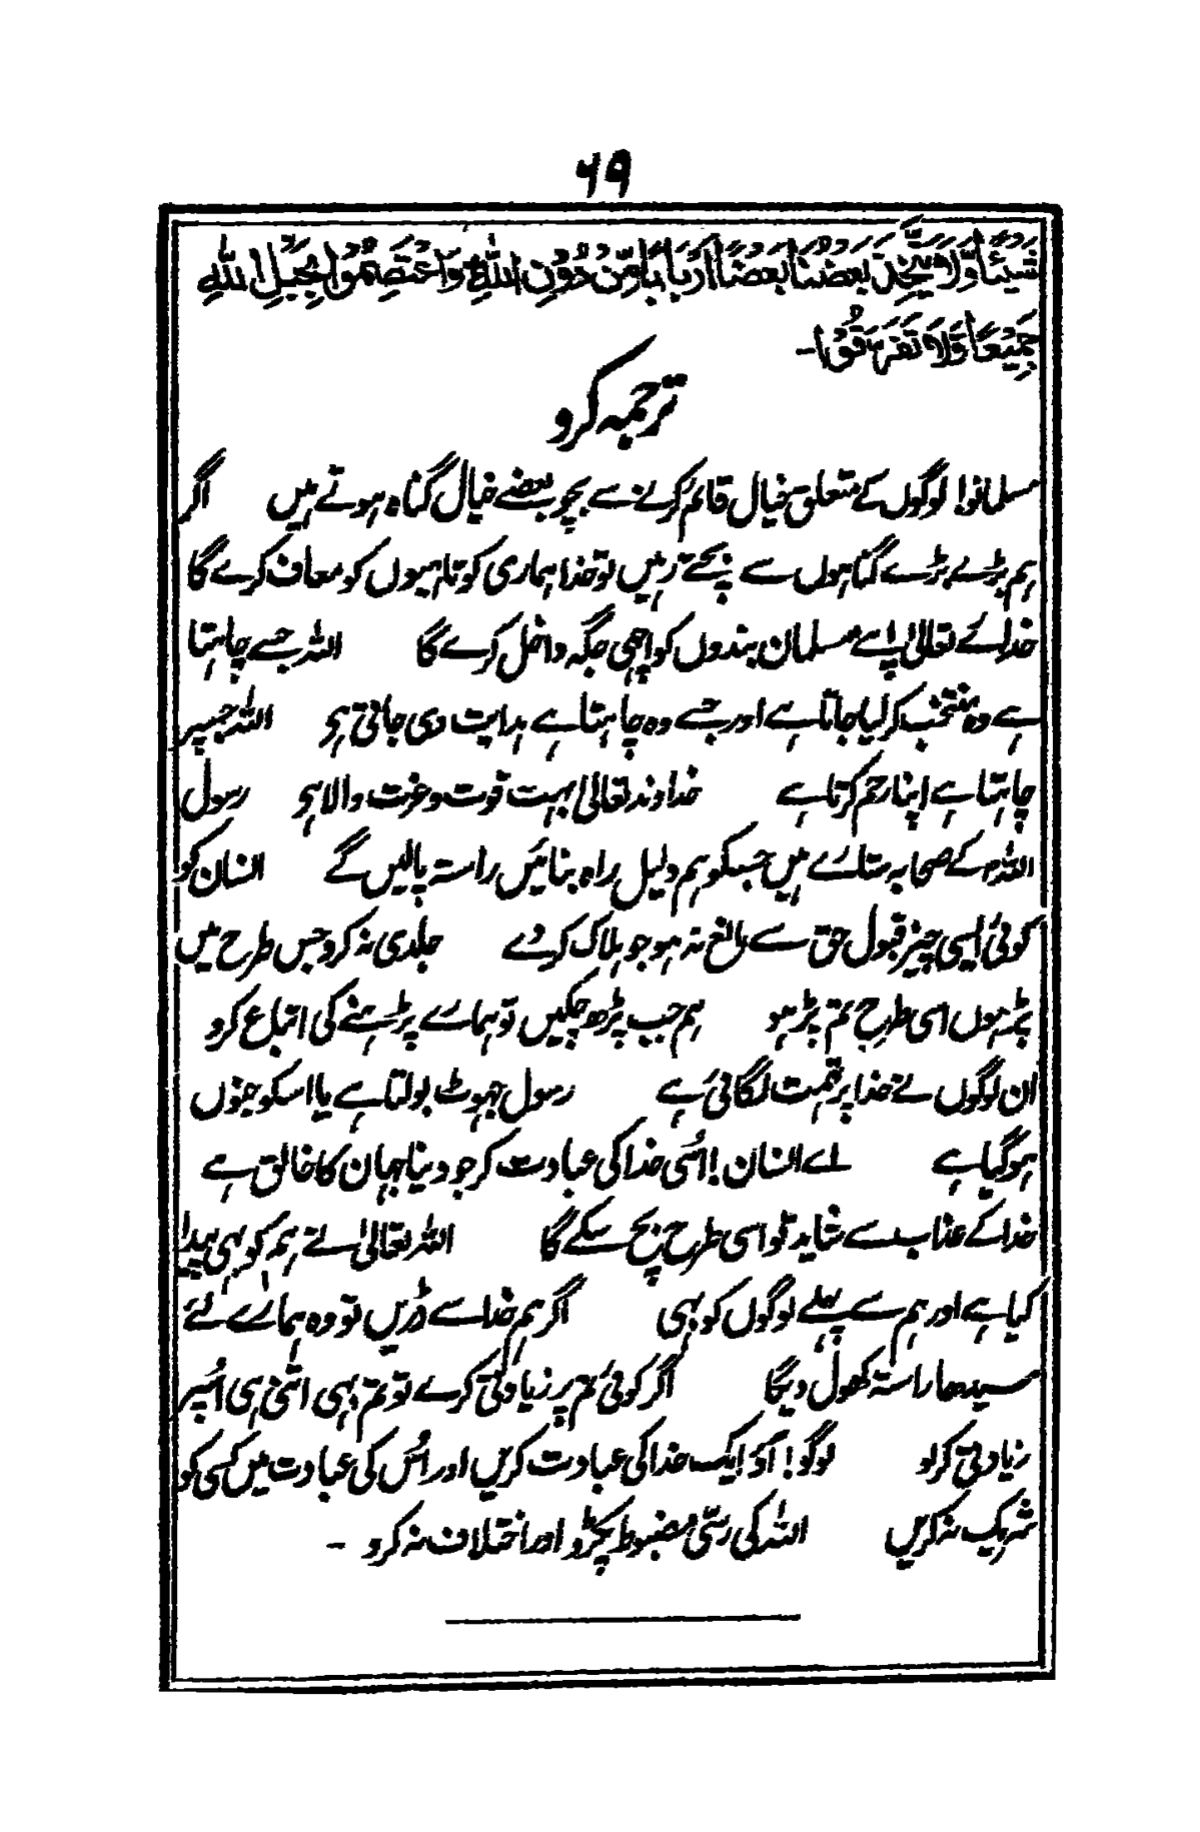 ۶۹
شَيْئًا وَّلَا يَتَّخِذَ بَعْضُنَا بَعْضًا اَرْبَابًا مِّنْ دُوْنِ اللّٰهِ وَاعْتَصِمُوْا بِحَبْلِ اللّٰهِ
جَمِيْعًا وَّلَا تَفَرَّقُوْا۔
ترجمہ کرو
مسلمانو! لوگوں کے متعلق خیال قائم کرنے سے بچو بعضے خیال گناہ ہوتے ہیں اگر
ہم بڑے بڑے گناہوں سے بچتے رہیں تو خدا ہماری کوتاہیوں کو معاف کرے گا
خدائے تعالیٰ اپنے مسلمان بندوں کو اچھی جگہ داخل کرے گا اللہ جسے چاہتا
ہے وہ منتخب کر لیا جاتا ہے اور جسے وہ چاہتا ہے ہدایت دی جاتی ہی اللہ جسپر
چاہتا ہے اپنا رحم کرتا ہے خداوند تعالیٰ بہت قوت و عزت والا ہی رسول
اللہ کے صحابہ ستارے ہیں جسکو ہم دلیل راہ بنائیں راستہ پالیں گے انسان کو
کوئی ایسی چیز قبول حق سے مانع نہ ہو جو ہلاک کر دے جلدی نہ کرو جس طرح میں
پڑہوں اسی طرح تم پڑہو ہم جب پڑھ چکیں تو ہمارے پڑہنے کی اتباع کرو
ان لوگوں نے خدا پر تہمت لگائی ہے رسول جہوٹ بولتا ہے یا اسکو جنوں
ہو گیا ہے اے انسان! اُسی خدا کی عبادت کر جو دنیا جہان کا خالق ہے
خدا کے عذاب سے شاید تو اسی طرح بچ سکے گا اللہ تعالیٰ نے ہم کو بہی پیدا
کیا ہے اور ہم سے پہلے لوگوں کو بہی اگر ہم خدا سے ڈریں تو وہ ہمارے لئے
سیدھا راستہ کھول دیگا اگر کوئی تم پر زیادتی کرے تو تم بہی اتنی ہی اُسپر
زیادتی کرلو لوگو! آؤ ایک خدا کی عبادت کریں اور اُس کی عبادت میں کسی کو
شریک نہ کریں اللہ کی رسّی مضبوط پکڑو اور اختلاف نہ کرو ۔